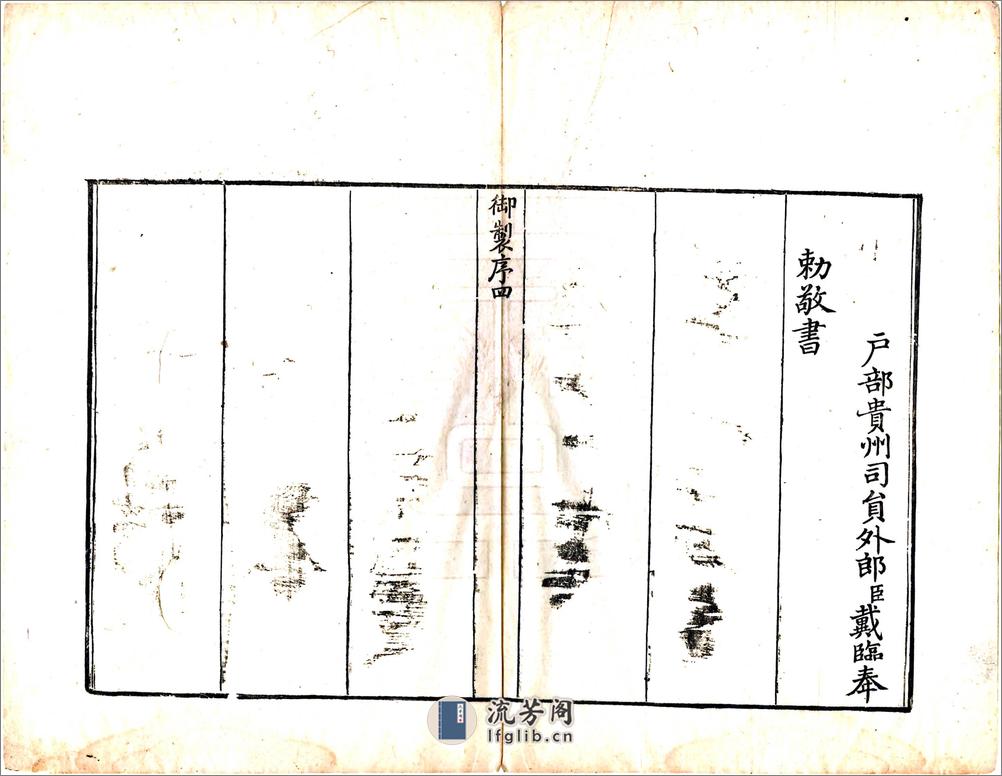 户部貴州司貟外郎臣戴臨奉
勅敬書
御製序四
流芳阁
lfglib.cn